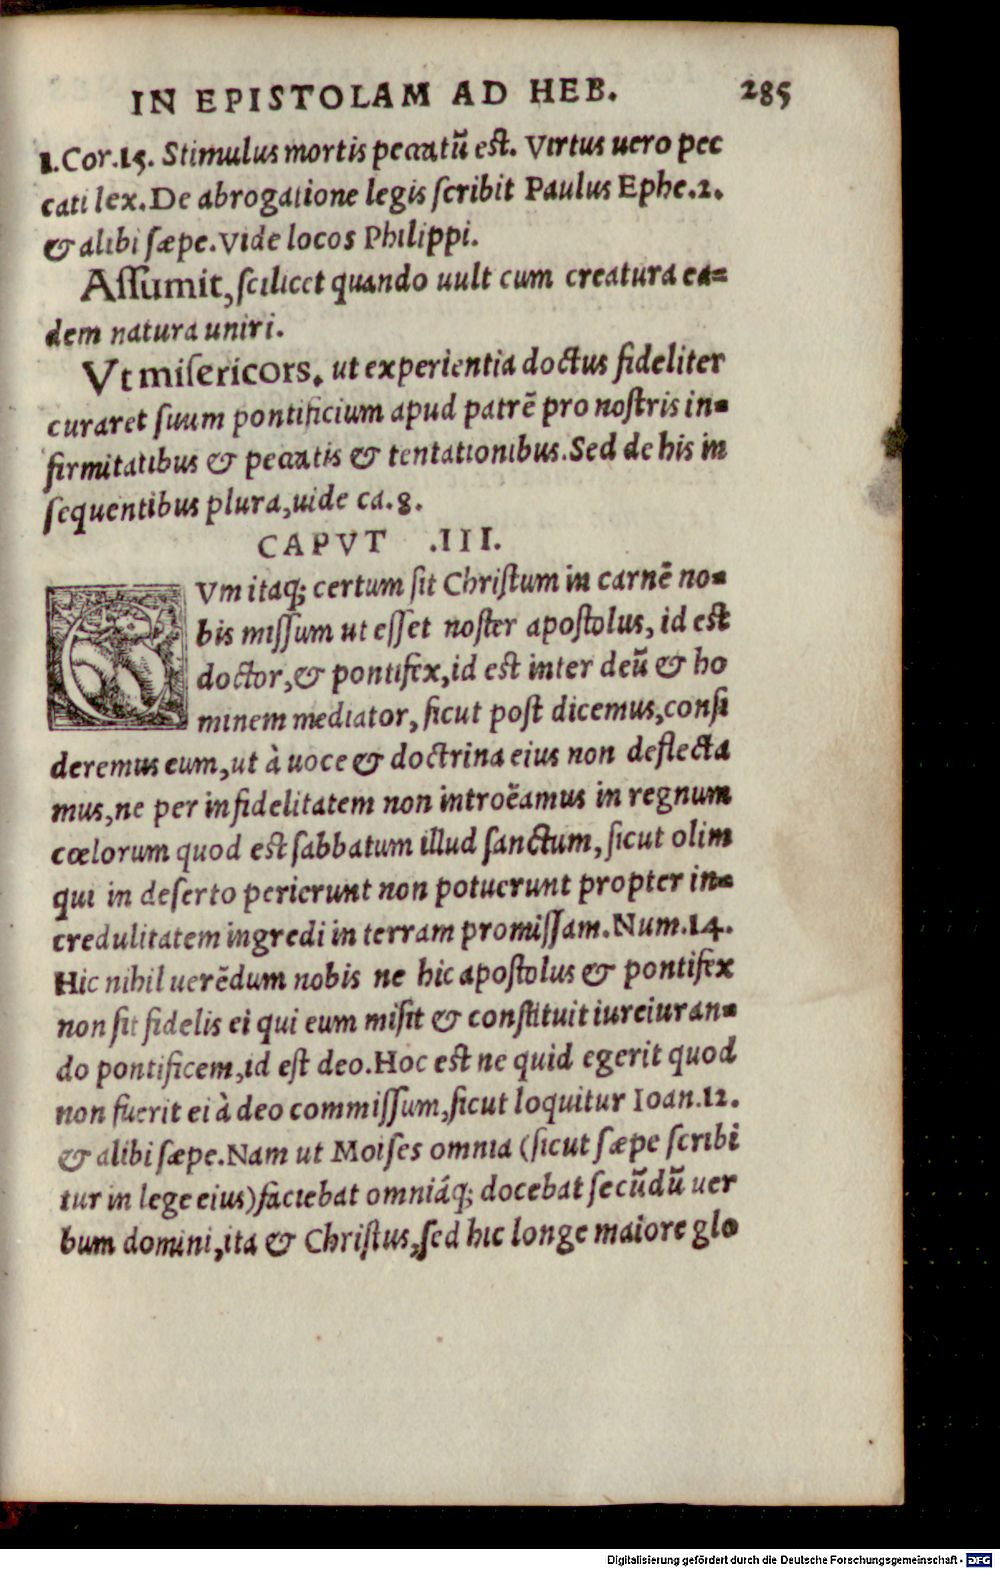 IN EPISTOLAM AD HEB. 285
1.Cor.15. Stimulus mortis peccatũ est. Virtus uero pec
cati lex. De abrogatione legis scribit Paulus Ephe.2.
& alibi sæpe. Vide locos Philippi.
Assumit, scilicet quando uult cum creatura ea-
dem natura uniri.
Vt misericors. ut experientia doctus fideliter
curaret suum pontificium apud patrẽ pro nostris in-
firmitatibus & peccatis & tentationibus. Sed de his in
sequentibus plura, uide ca.8.
CAPVT .III.
CVm itaq; certum sit Christum in carnẽ no-
bis missum ut esset noster apostolus, id est
doctor, & pontifex, id est inter deũ & ho
minem mediator, sicut post dicemus, consi
deremus eum, ut à uoce & doctrina eius non deflecta
mus, ne per infidelitatem non introẽamus in regnum
cœlorum quod est sabbatum illud sanctum, sicut olim
qui in deserto perierunt non potuerunt propter in-
credulitatem ingredi in terram promissam. Num.14.
Hic nihil uerẽdum nobis ne hic apostolus & pontifex
non sit fidelis ei qui eum misit & constituit iureiuran-
do pontificem, id est deo. Hoc est ne quid egerit quod
non fuerit ei à deo commissum, sicut loquitur Ioan.12.
& alibi sæpe. Nam ut Moises omnia (sicut sæpe scribi
tur in lege eius) faciebat omniáq; docebat secũdũ uer
bum domini, ita & Christus, sed hic longe maiore glo
Digitalisierung gefördert durch die Deutsche Forschungsgemeinschaft - DFG